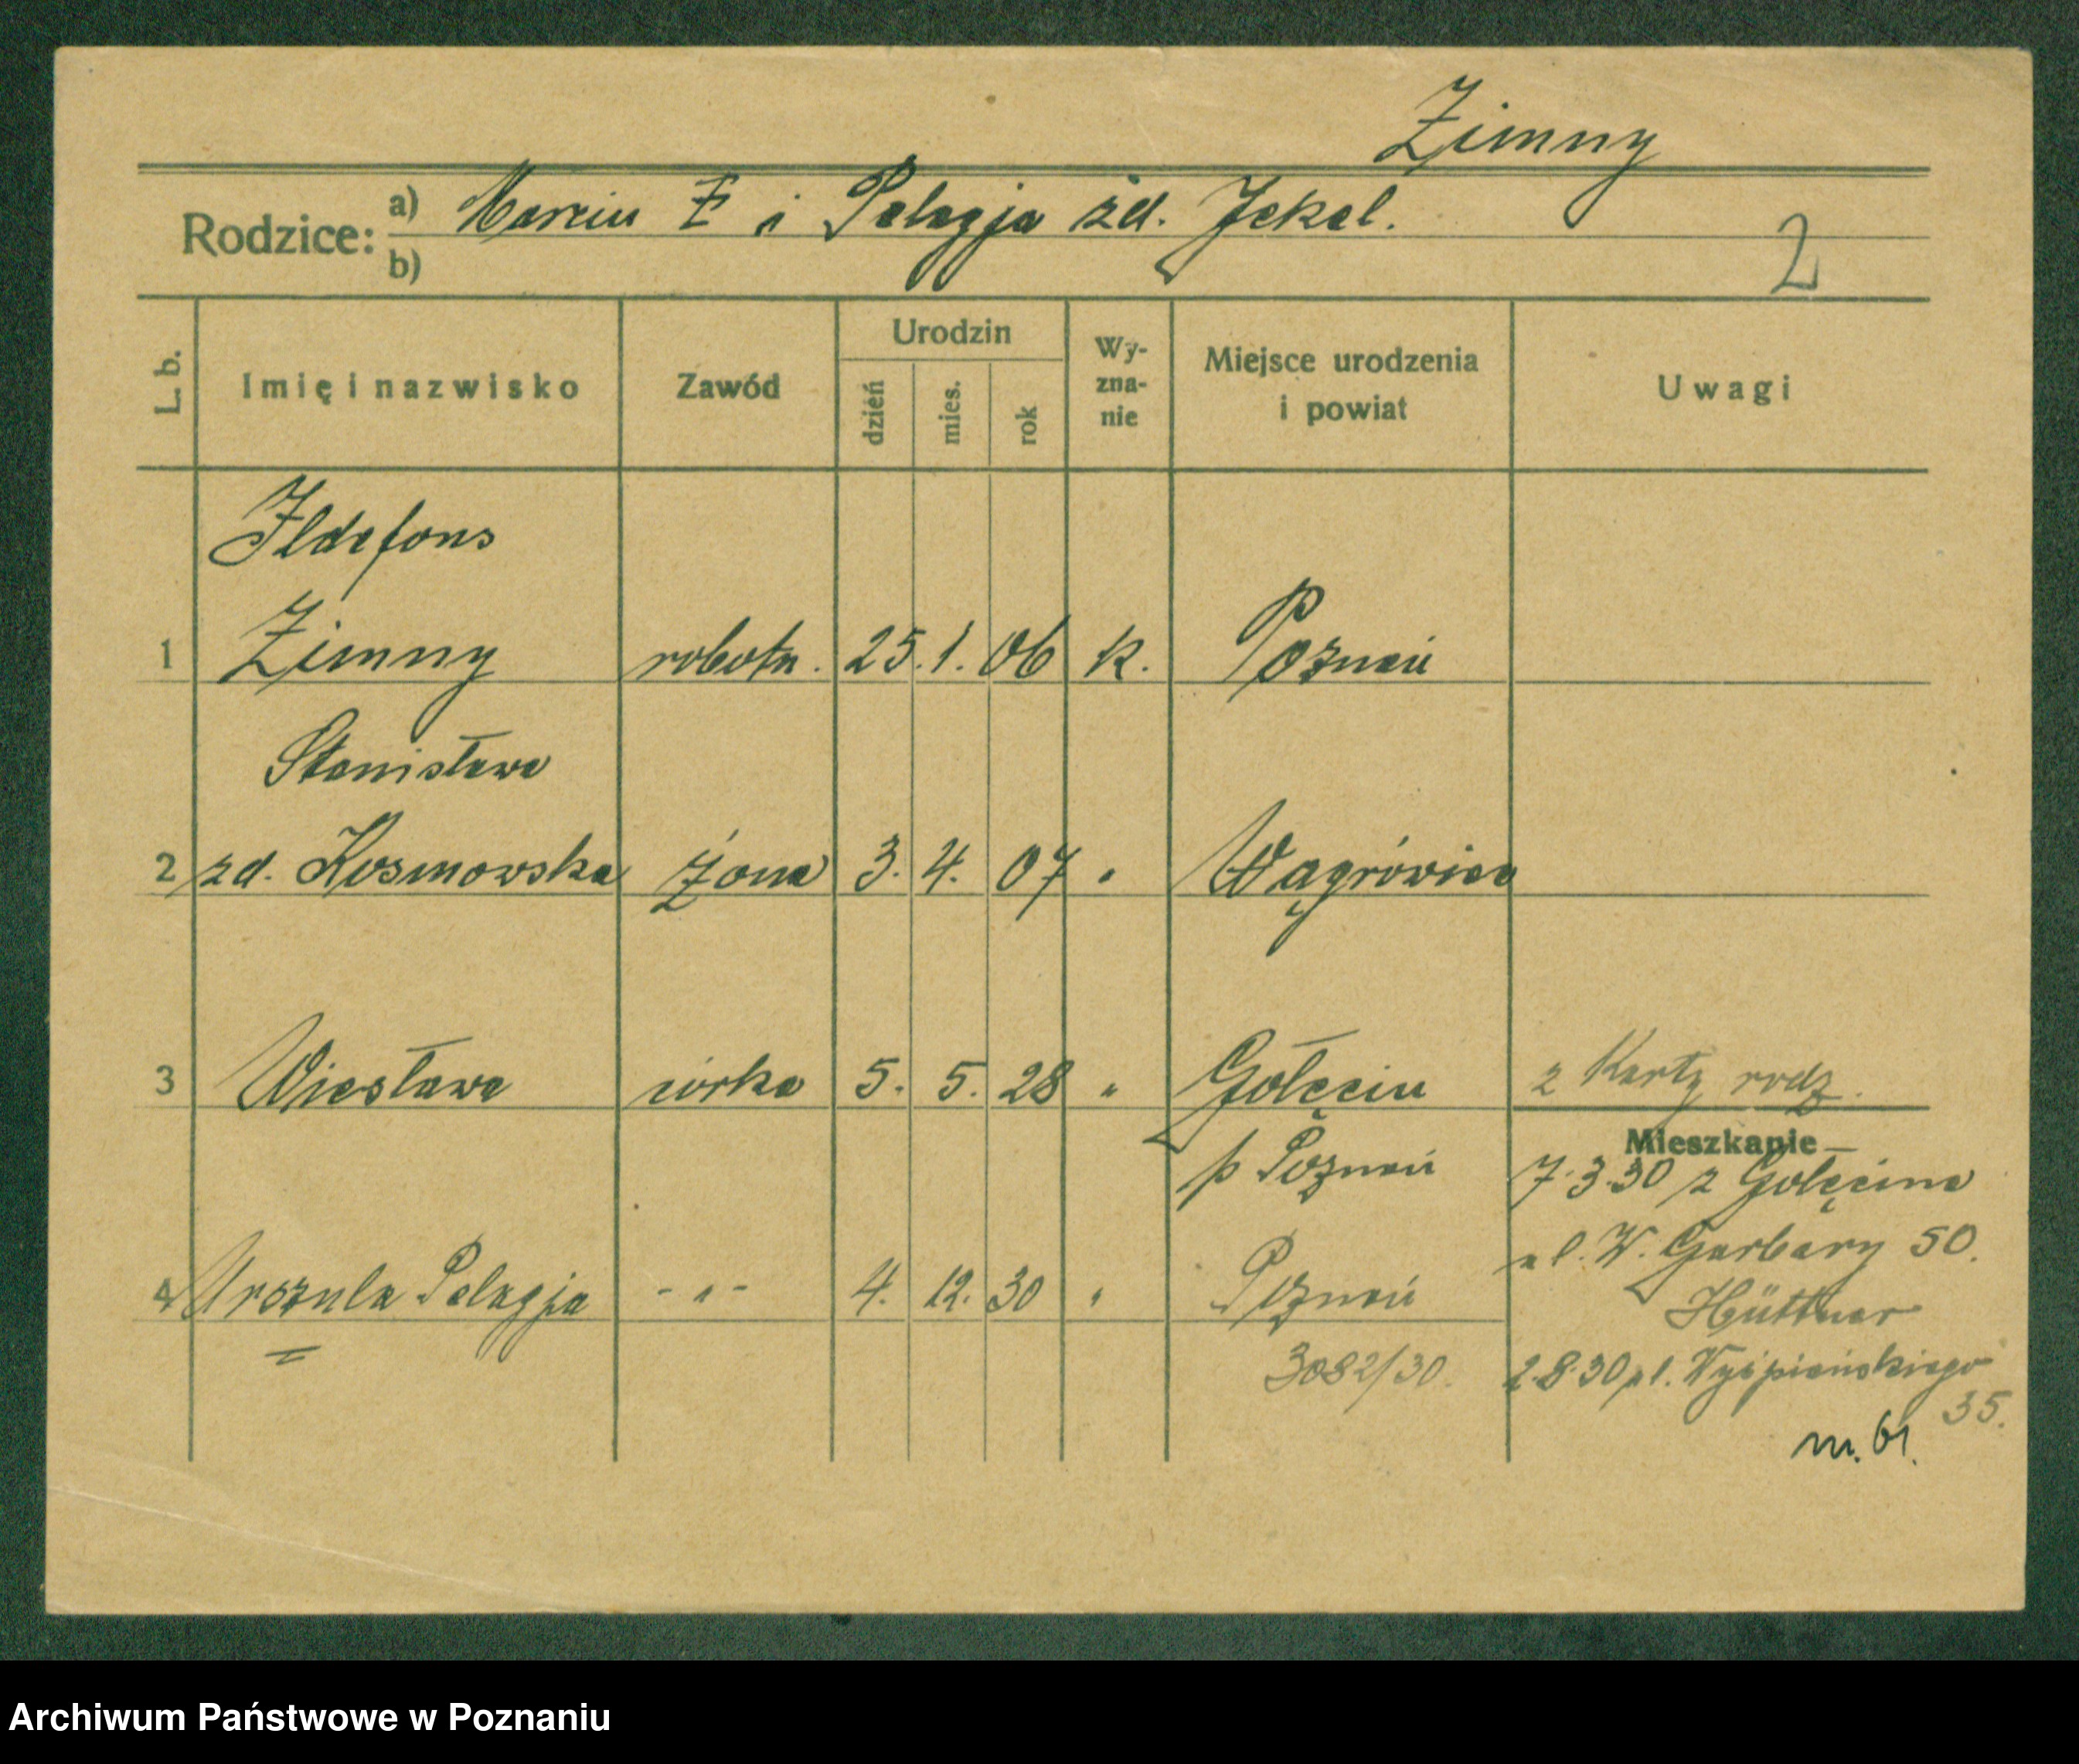 Zimny
Rodzice: a) Marcin Z i Pelagja zd. Jekel.
b)
2
L. b.
Imię i nazwisko
Zawód
Urodzin
dzień
mies.
rok
Wy-
zna-
nie
Miejsce urodzenia
i powiat
Uwagi
Ildefons
1 Zimny robotn. 25. 1. 06 k. Poznań
Stanisława
2 zd. Kosmowska żona 3. 4. 07 " Wągrówiec
3 Wiesława córka 5. 5. 28 " Gołęcin
p Poznań
2 Karty rodz.
Mieszkanie
7.3.30 z Golęcina
ul. W. Garbary 50.
Hüttner
4 Urszula Pelagja - " - 4. 12. 30 " Poznań
3082/30.
2.8.30 pl. Wyśpiańskiego
35.
m. 61.
Archiwum Państwowe w Poznaniu